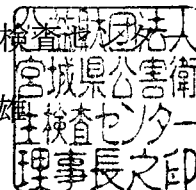 検査 団法人
宮城県公害衛
雄
生検査センター
理事長之印